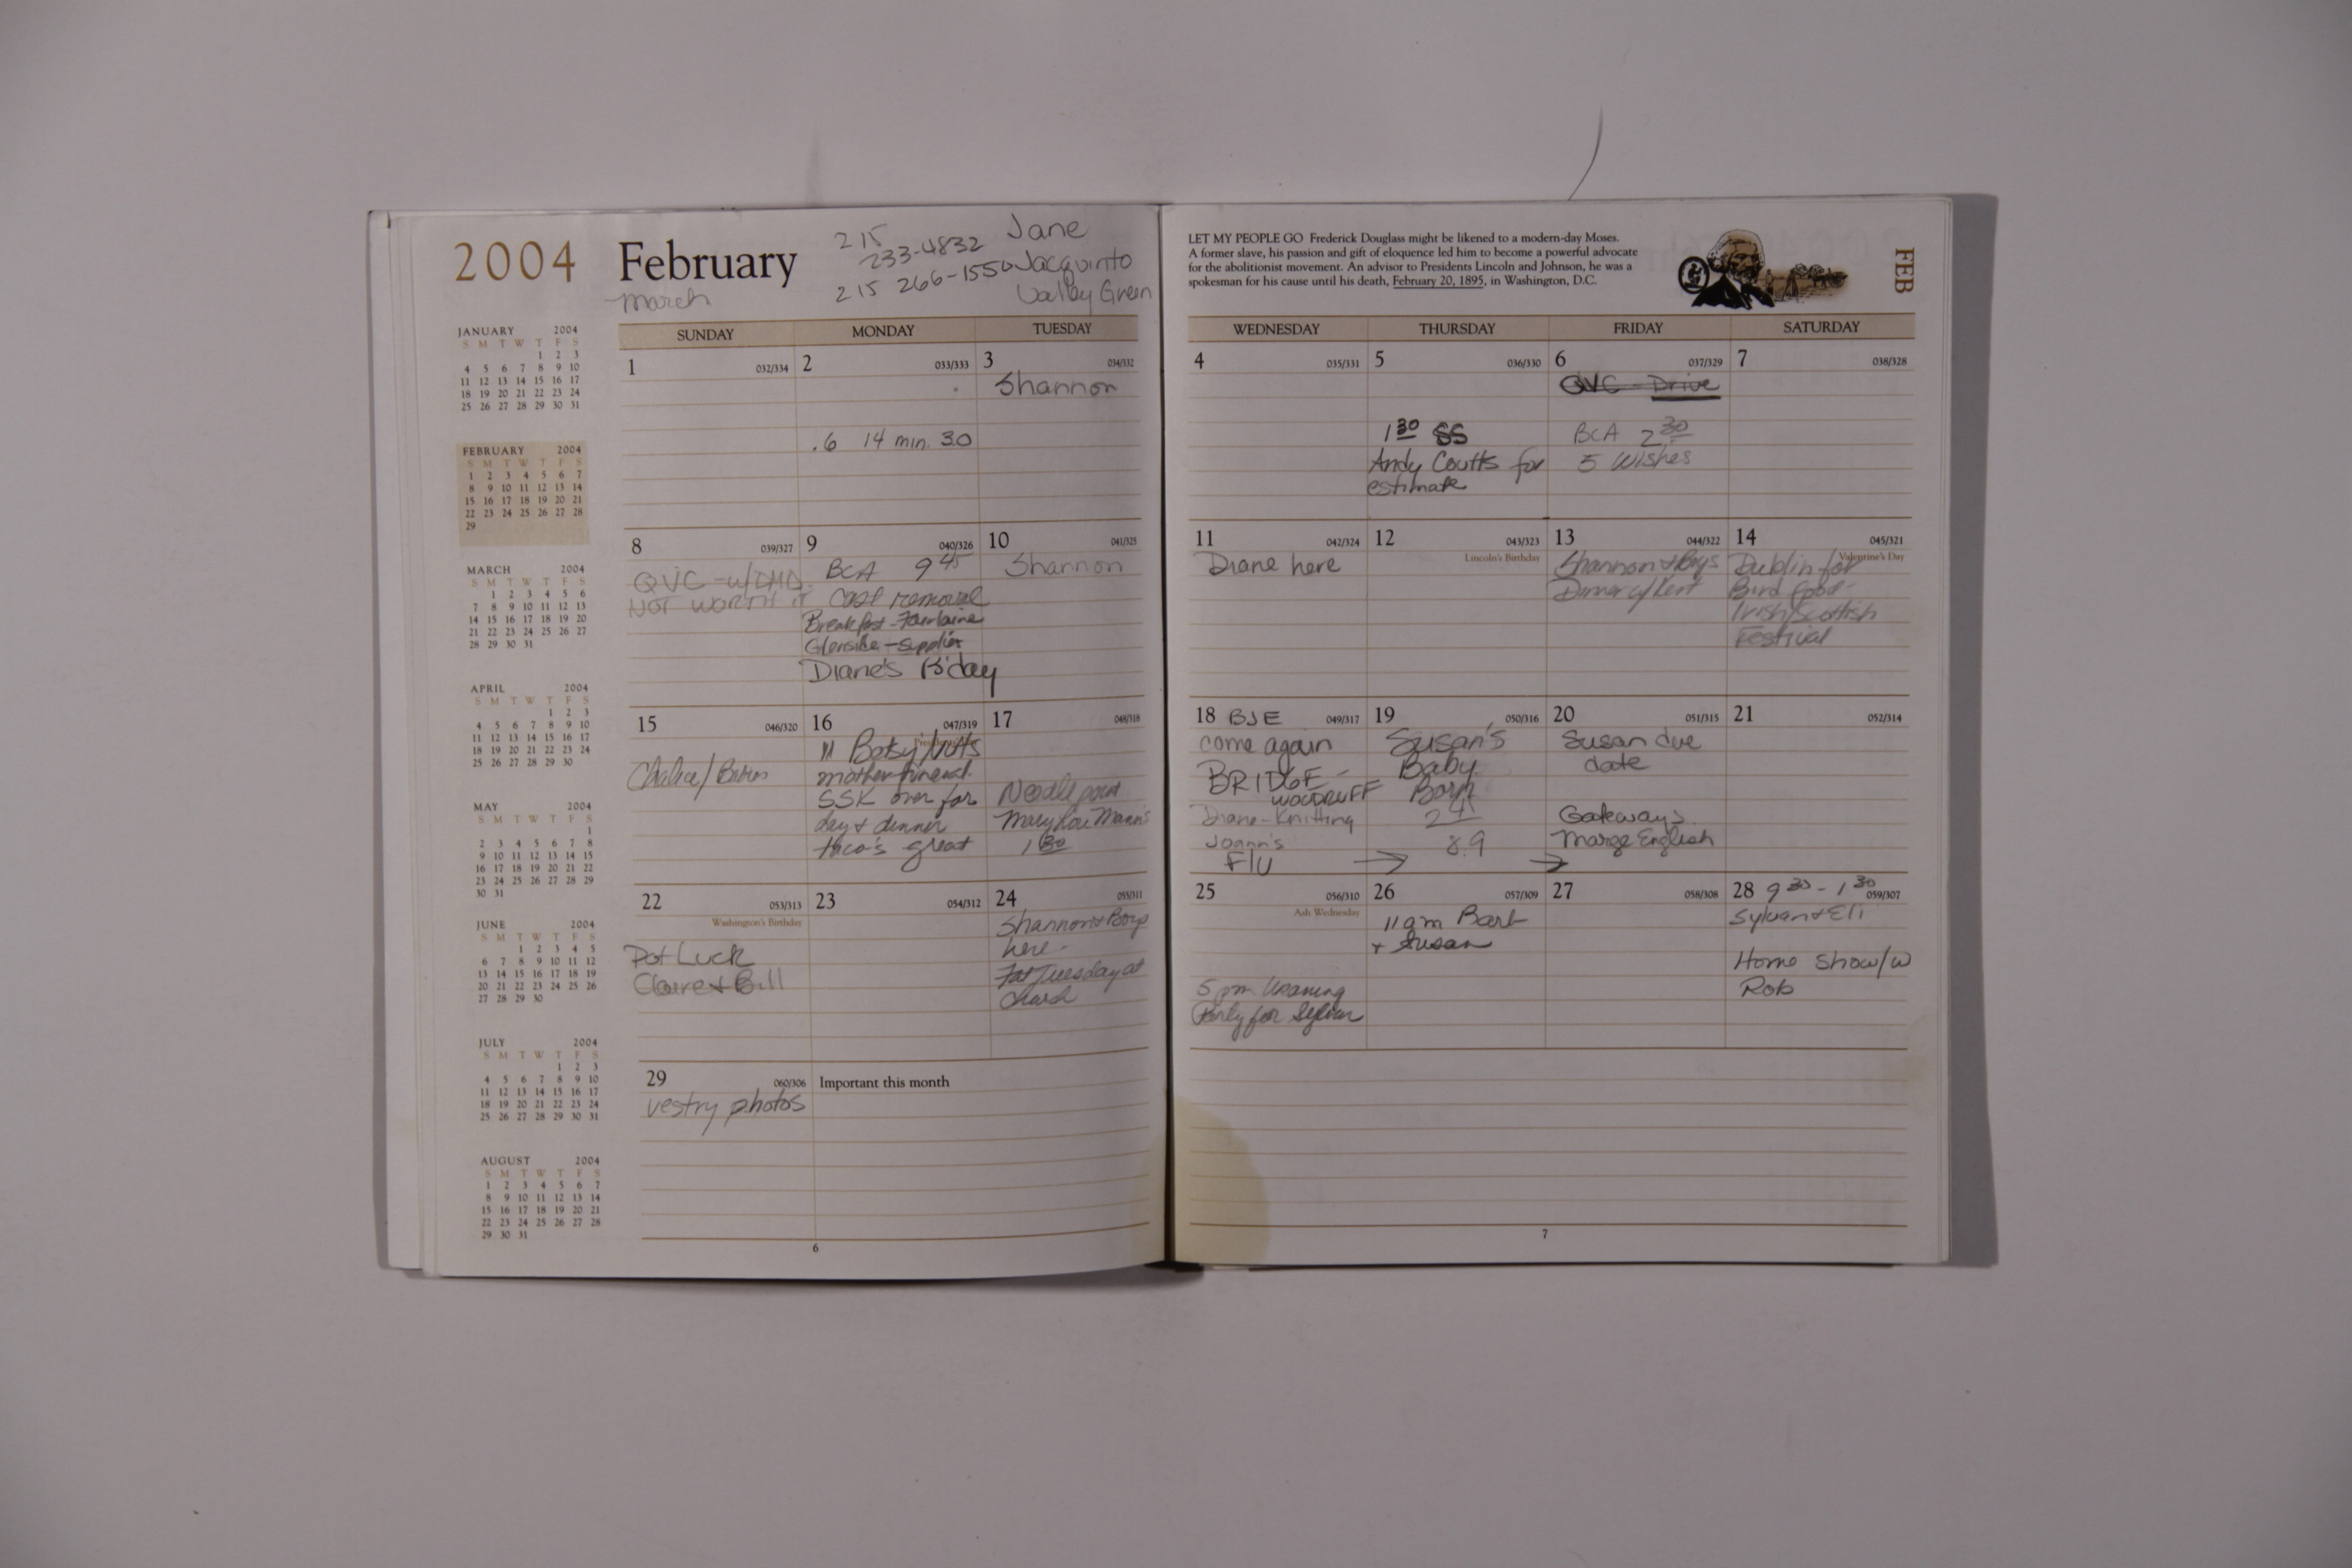 2004
February
march
215
233-4832
215 266-1550
Jane
Jacquinto
Valley Green
JANUARY 2004
S M T W T F S
1 2 3
4 5 6 7 8 9 10
11 12 13 14 15 16 17
18 19 20 21 22 23 24
25 26 27 28 29 30 31
FEBRUARY 2004
S M T W T F S
1 2 3 4 5 6 7
8 9 10 11 12 13 14
15 16 17 18 19 20 21
22 23 24 25 26 27 28
29
MARCH 2004
S M T W T F S
1 2 3 4 5 6
7 8 9 10 11 12 13
14 15 16 17 18 19 20
21 22 23 24 25 26 27
28 29 30 31
APRIL 2004
S M T W T F S
1 2 3
4 5 6 7 8 9 10
11 12 13 14 15 16 17
18 19 20 21 22 23 24
25 26 27 28 29 30
MAY 2004
S M T W T F S
1
2 3 4 5 6 7 8
9 10 11 12 13 14 15
16 17 18 19 20 21 22
23 24 25 26 27 28 29
30 31
JUNE 2004
S M T W T F S
1 2 3 4 5
6 7 8 9 10 11 12
13 14 15 16 17 18 19
20 21 22 23 24 25 26
27 28 29 30
JULY 2004
S M T W T F S
1 2 3
4 5 6 7 8 9 10
11 12 13 14 15 16 17
18 19 20 21 22 23 24
25 26 27 28 29 30 31
AUGUST 2004
S M T W T F S
1 2 3 4 5 6 7
8 9 10 11 12 13 14
15 16 17 18 19 20 21
22 23 24 25 26 27 28
29 30 31
SUNDAY MONDAY TUESDAY
1 032/334
2 033/333
.6 14 min. 30
3 034/332
Shannon
8 039/327
QVC - w/DHD
NOT WORTH IT
9 040/326
BCA 9 45
Cast removal
Breakfast - Fairlaine
Glenside - supplies
Diane's B'day
10 041/325
Shannon
15 046/320
Chalice/
16 047/319
11 Betsy Nutts
mother funeral.
SSK over for
day + dinner
taco's great
17 048/318
Needle point
Mary Lou Mann's
1 30
22 053/313
Washington's Birthday
Pot Luck
Claire + Bill
23 054/312
24 055/311
Shannon + Boys
here -
Fat Tuesday at
church
29 060/306
vestry photos
Important this month
6
LET MY PEOPLE GO Frederick Douglass might be likened to a modern-day Moses.
A former slave, his passion and gift of eloquence led him to become a powerful advocate
for the abolitionist movement. An advisor to Presidents Lincoln and Johnson, he was a
spokesman for his cause until his death, February 20, 1895, in Washington, D.C.
FEB
WEDNESDAY THURSDAY FRIDAY SATURDAY
4 035/331
5 036/330
1 30 SS
Andy Coutts for
estimate
6 037/329
QVC - Drive
BCA 2 30
5 Wishes
7 038/328
11 042/324
Diane here
12 043/323
Lincoln's Birthday
13 044/322
Shannon + Boys
Dinner c/Kent
14 045/321
Valentine's Day
Dublin for
Bird food -
Irish/Scottish
Festival
18 BJE 049/317
come again
BRIDGE -
WOODRUFF
Diane - Knitting
Joann's
F/U →
19 050/316
Susan's
Baby
Born
24
8.9
→
20 051/315
Susan due
date
Gateways
Marge English
21 052/314
25 056/310
Ash Wednesday
5 pm
Party for Sylvan
26 057/309
11 am Bart
+ Susan
27 058/308
28 9 30 - 1 30 059/307
Sylvan + Eli
Home Show/w
Rob
7